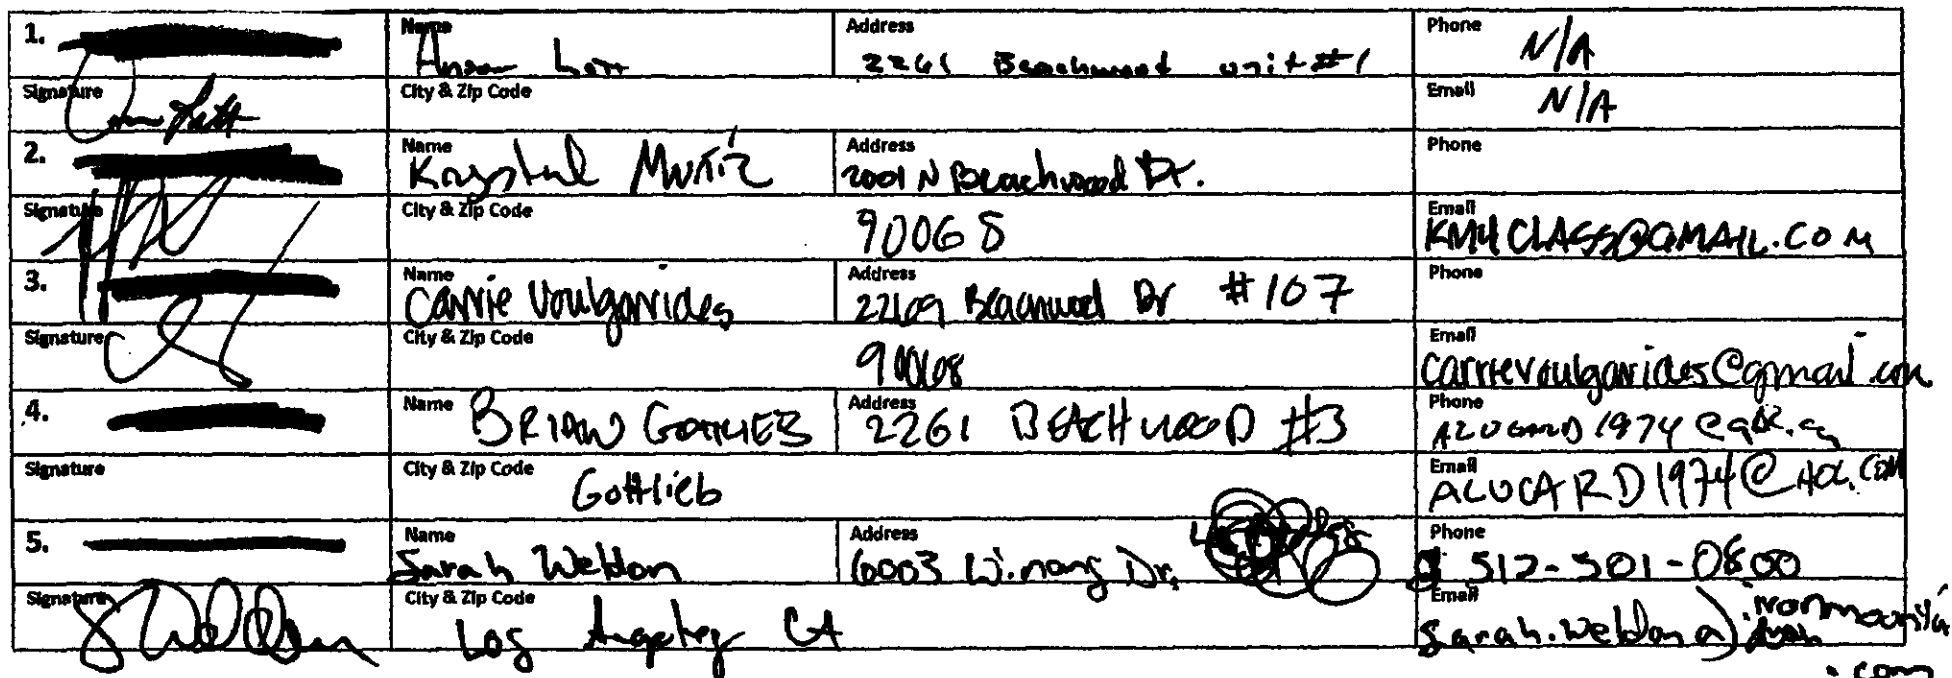 1. Name Address Phone N/A
Lott 2261 Beachwood unit #1
Signature City & Zip Code Email N/A
2. Name Krystal Muñiz Address 2001 N Beachwood Dr. Phone
Signature City & Zip Code 90068 Email KM4CLASS@GMAIL.COM
3. Name Carrie Voulgarides Address 2269 Beachwood Dr #107 Phone
Signature City & Zip Code 90068 Email carrievoulgarides@gmail.com
4. Name BRIAN GOTTLIEB Address 2261 BEACHWOOD #3 Phone
Signature City & Zip Code Gottlieb Email ALUCARD1974@AOL.COM
5. Name Sarah Weldon Address 6003 Winans Dr. Phone 512-501-0800
Signature City & Zip Code Los Angeles CA Email sarah.weldon@
.com